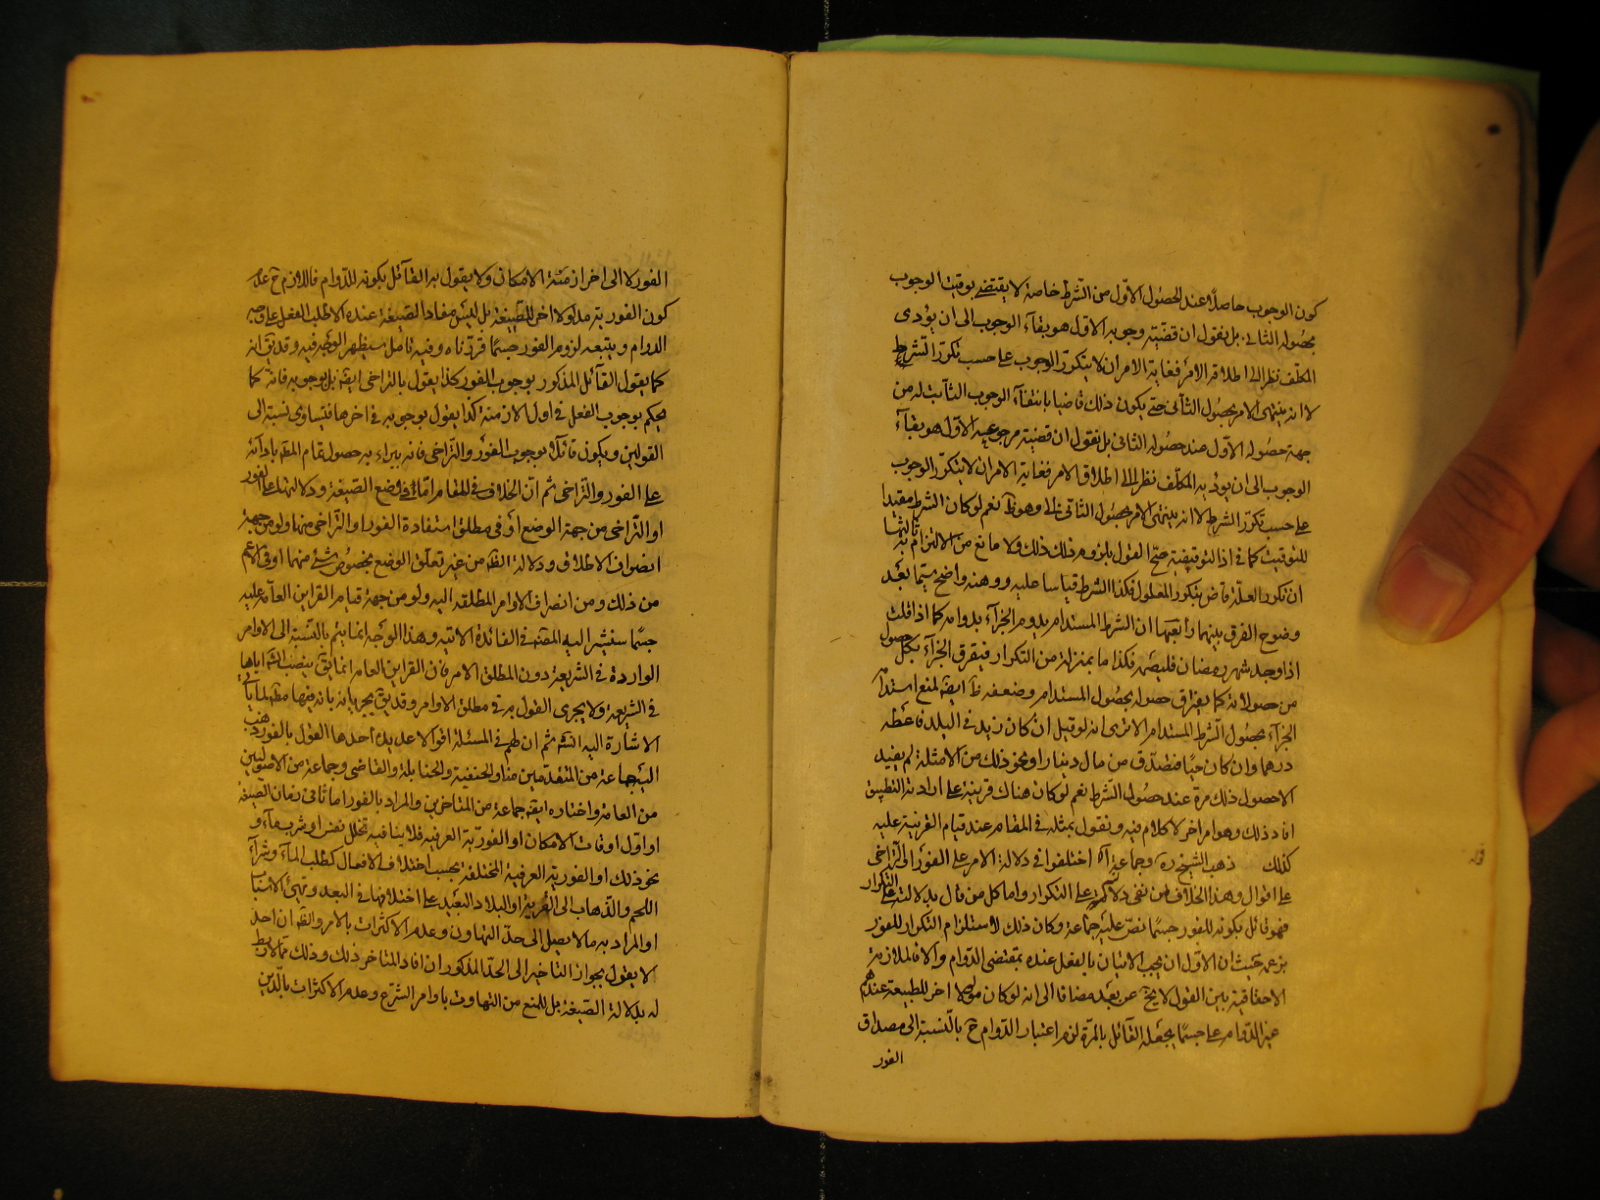 كون الوجوب حاصلا عند الحصول الاول من الشرط خاصة لا يقتضى توقيت الوجوب
بحصوله الثانى بل نقول ان قضيته وجوبه الاول هو بقاء الوجوب الى ان يؤدى
المكلف نظرا الى اطلاق الامر فغاية الامر ان لا يتكرر الوجوب على حسب تكرر الشرط
لا انه ينتهى الامر بحصول الثانى حتى يكون ذلك قاضيا بانتفاء الوجوب الثابت له من
جهة حصوله الاول عند حصوله الثانى بل نقول ان قضيته الاول هو بقاء
الوجوب الى ان يؤديه المكلف نظرا الى اطلاق الامر فغاية الامر ان لا يتكرر الوجوب
على حسب تكرر الشرط لا انه ينتهى الامر بحصول الثانى وهو ظ نعم لو كان الشرط مقيدا
للتوقيت كما فى اذا التوقيتية صح القول بلزوم ذلك ولا مانع من الالتزام به ثالثها
ان تكرر العلة قاض بتكرر المعلول فكذا الشرط قياسا عليه ووهنه واضح سيما بعد
وضوح الفرق بينهما رابعها ان الشرط المستدام يدوم الجزاء بدوامه كما اذا قلت
اذا وجد شهر رمضان فليصم فكذا ما بمنزلته من التكرار فيفرق الجزاء بكل حصول
من حصولاته كما يفترق حصوله بحصول المستدام وضعفه ظ ايضا لمنع استدام
الجزاء بحصول الشرط المستدام الا ترى انه لو قيل ان كان زيد فى البلد فاعطه
درهما وان كان حيا فتصدق من مال دينار او نحو ذلك من الامثلة لم يفيد
الا حصول ذلك مرة عند حصول الشرط نعم لو كان هناك قرينة على ارادته التطبيق
افاد ذلك وهو امر اخر لا كلام فيه ونقول بمثله فى المقام عند قيام القرينة عليه
كذلك ذهب الشيخ ره وجماعة اه اختلفوا فى دلالة الامر على الفور او التراخى
على اقوال وهذا الخلاف من نفى دلالته على التكرار واما كل من قال بدلالته على التكرار
فهو قائل بكونه للفور حسبما نص عليه جماعة وكان ذلك لاستلزام التكرار للفور
بزعمه حيث ان الاول ان يجب الاتيان بالفعل عنده بمقتضى الدوام والا فالملازمة
الاتفاقية بين القول لا يخ عن بعد مضافا الى انه لو كان مدلولا اخر للطبيعة عندهم
غير الدوام على حسبما يجعله القائل بالمرة لزم اعتبار الدوام ح بالنسبة الى مصداق
الفور
الفور لا الى اخر ازمنة الامكان ولا يقول به القائل بكونه للدوام فاللازم ح عدم
كون الفورية مدلولا اخر للصيغة بل ليس مفاد الصيغة عنده الا طلب الفعل على وجه
الدوام ويتبعه لزوم الفور حسبما قررناه وفيه تامل سيظهر الوجه فيه وقد يق انه
كما يقول القائل المذكور بوجوب الفور كذا يقول بالتراخى ايضا بل بوجوبه فانه كما
يحكم بوجوب الفعل فى اول الازمنة كذا يقول بوجوبه فى اخرها فتساوى نسبته الى
القولين ويكون قائلا بوجوب الفور والتراخى فانه براء به حصول تمام المط بادائه
على الفور والتراخى ثم ان الخلاف فى المقام اما فى وضع الصيغة ودلالتها على الفور
او التراخى من جهة الوضع او فى مطلق استفادة الفور او التراخى منها ولو من جهة
انصراف الاطلاق ودلالة الظ من غير تعلق الوضع بخصوص شئ منهما او فى الاعم
من ذلك ومن انصراف الاوامر المطلقه اليه ولو من جهة قيام القراين العامة عليه
حسبما سنشير اليه المصنف فى الفائدة الاتيه وهذا الوجه انما يتم بالنسبة الى الاوامر
الواردة فى الشريعة دون المطلق الامر فان القراين العامة انما يق بنصب الش اياها
فى الشريعة ولا يجرى القول به فى مطلق الاوامر وقد يق بجريانه فيها ايضا
الاشارة اليه انشم ثم ان لهم فى المسئلة اقوالا عديدة احدها القول بالفور ذهب
اليه جماعة من المتقدمين منا والحنفية والحنابلة والقاضى وجماعة من الاصوليين
من العامة واختاره ايضا جماعة من المتاخرين والمراد بالفور اما ثانى زمان الصيغة
او اول اوقات الامكان او الفورية العرفيه فلا ينافيه تخلل نفس او شرب ماء و
نحو ذلك او الفورية العرفية المختلفة بحسب اختلاف الافعال كطلب الماء وشراء
اللحم والذهاب الى القرية او البلاد البعيدة على اختلافها فى البعد وتهيئ الاسباب
او المراد به ما لا يصل الى حد التهاون وعدم الاكتراث بالامر والظ ان احد
لا يقول بجواز التاخير الى الحد المذكور ان افاد المتاخر ذلك وذلك مما لا ربط
له بدلالة الصيغة بل للمنع من التهاون باوامر الشرع وعدم الاكتراث بالدين